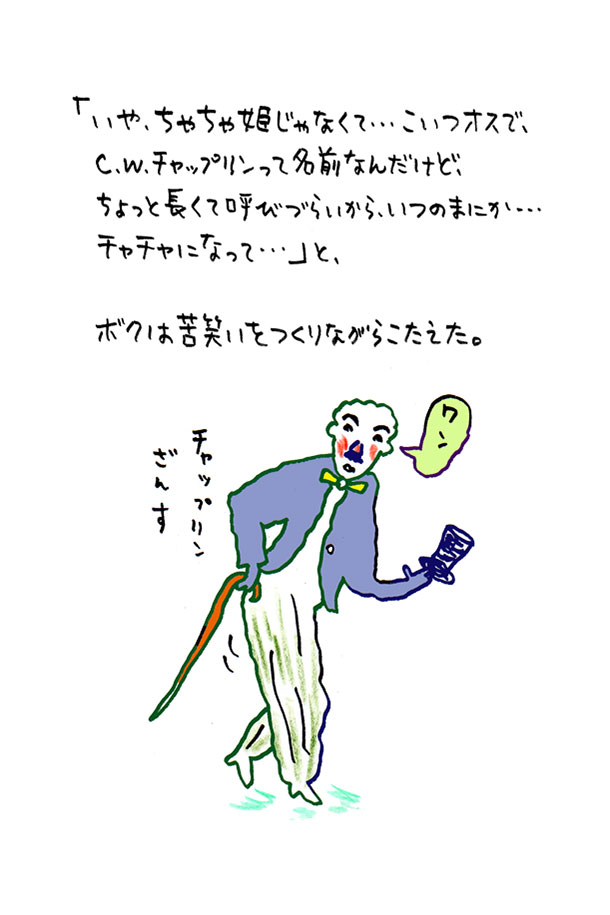 「いや、ちゃちゃ姫じゃなくて…こいつオスで、
C.W.チャップリンって名前なんだけど、
ちょっと長くて呼びづらいから、いつのまにか…
チャチャになって…」と、
ボクは苦笑いをつくりながらこたえた。
ワン
チャップリン
ざんす